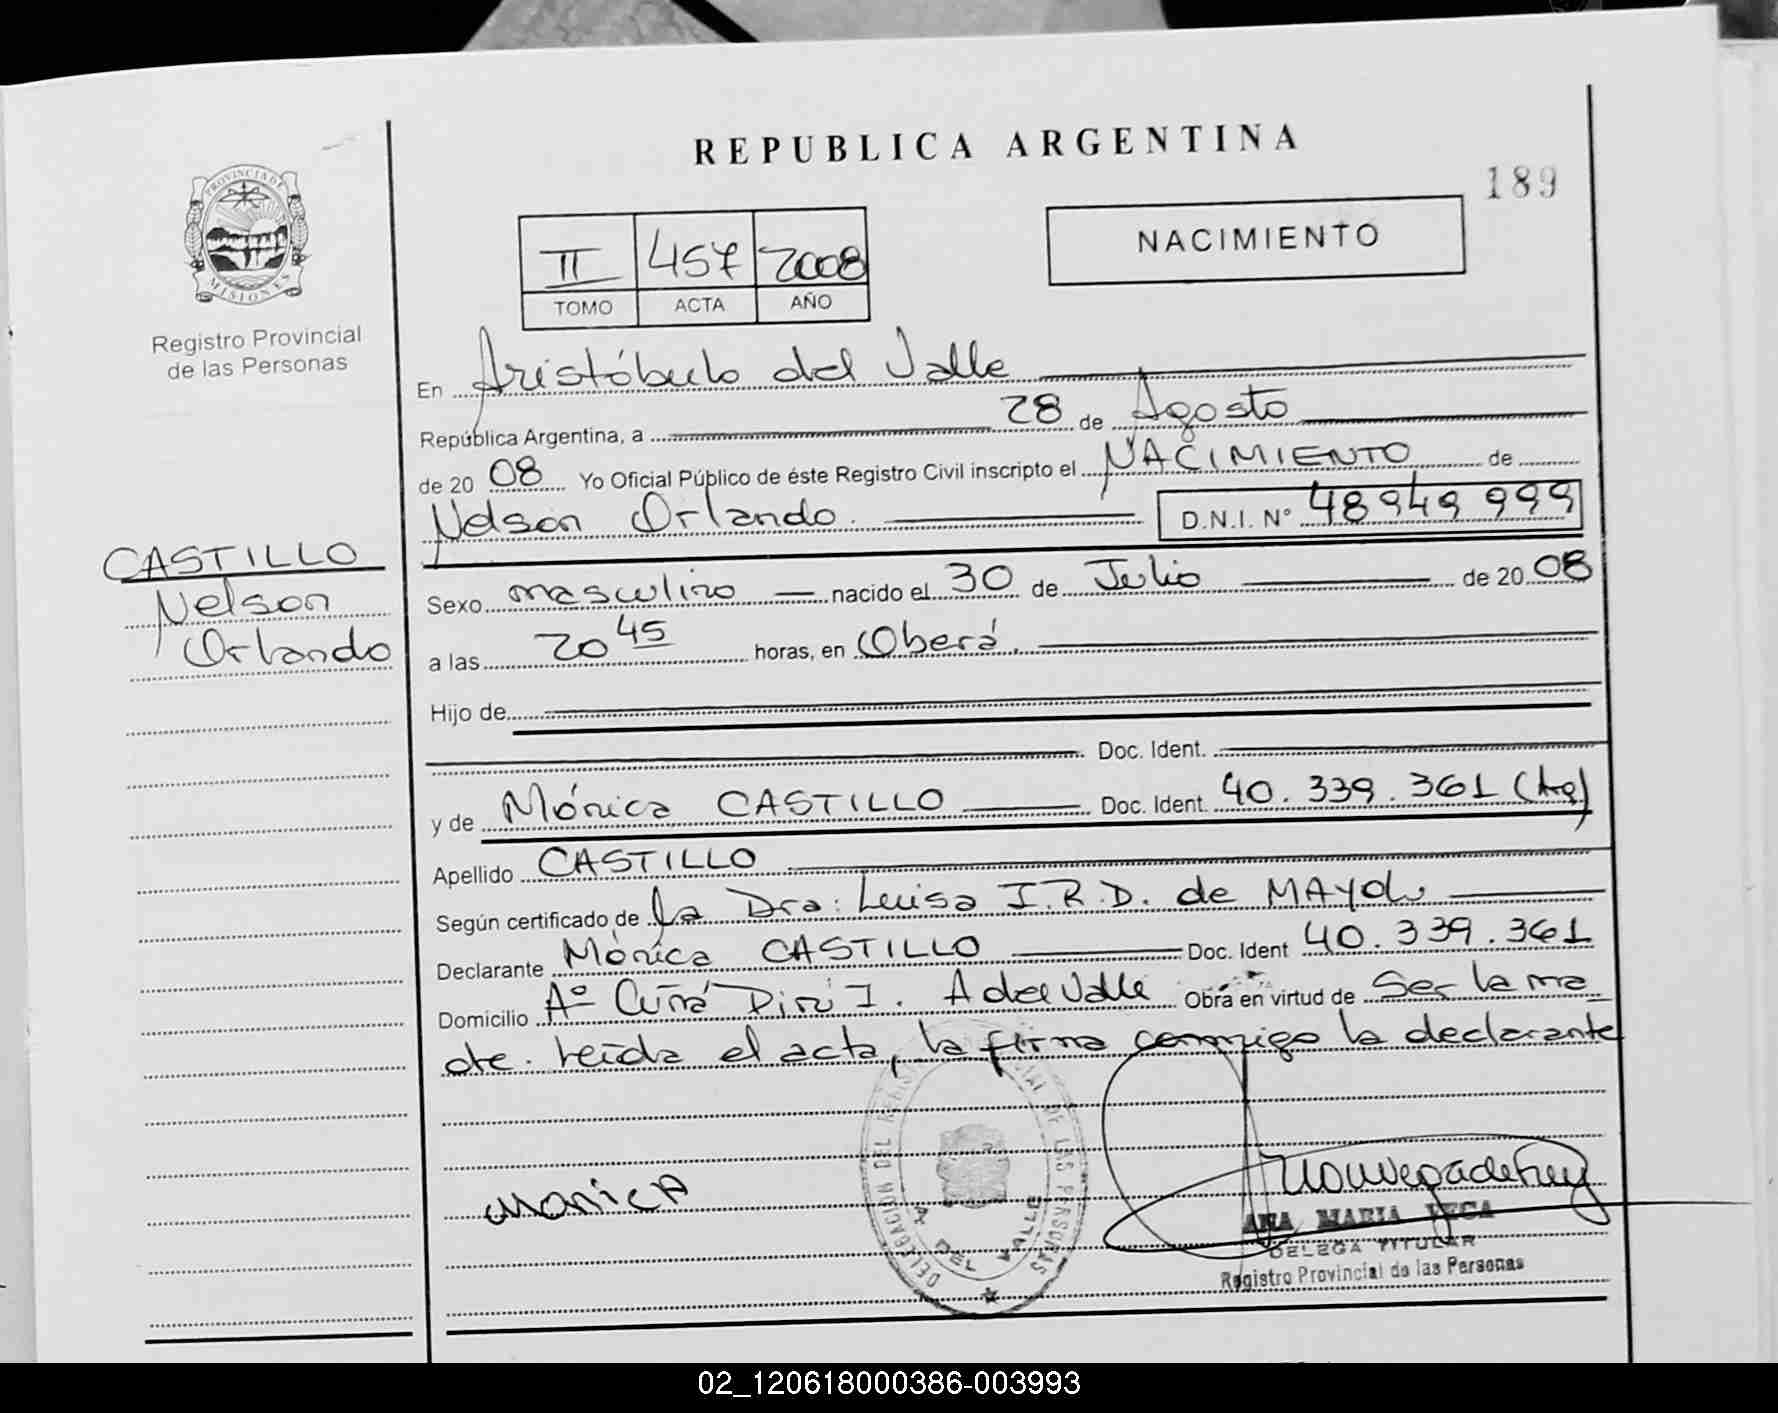 REPUBLICA ARGENTINA
189
PROVINCIA DE
MISIONES
Registro Provincial
de las Personas
II 457 2008
TOMO ACTA AÑO
NACIMIENTO
En Aristóbulo del Valle
República Argentina, a 28 de Agosto
de 20 08 Yo Oficial Público de éste Registro Civil inscripto el NACIMIENTO de
Nelson Orlando. D.N.I. Nº 48949999
CASTILLO
Nelson
Orlando
Sexo masculino nacido el 30 de Julio de 20 08
a las 20 45 horas, en Oberá.
Hijo de
Doc. Ident.
y de Mónica CASTILLO Doc. Ident. 40.339.361 (Arg)
Apellido CASTILLO
Según certificado de la Dra: Luisa I.R.D. de
Declarante Mónica CASTILLO Doc. Ident 40.339.361
Domicilio Aº Cuñá Pirú I. A del Valle Obra en virtud de Ser la ma
dre. Leída el acta, la firma conmigo la declarante
MONICA
DELEGACION DEL REGISTRO PROVINCIAL DE LAS PERSONAS
A. DEL VALLE
ANA MARIA VEGA
DELEGA TITULAR
Registro Provincial de las Personas
02_120618000386-003993